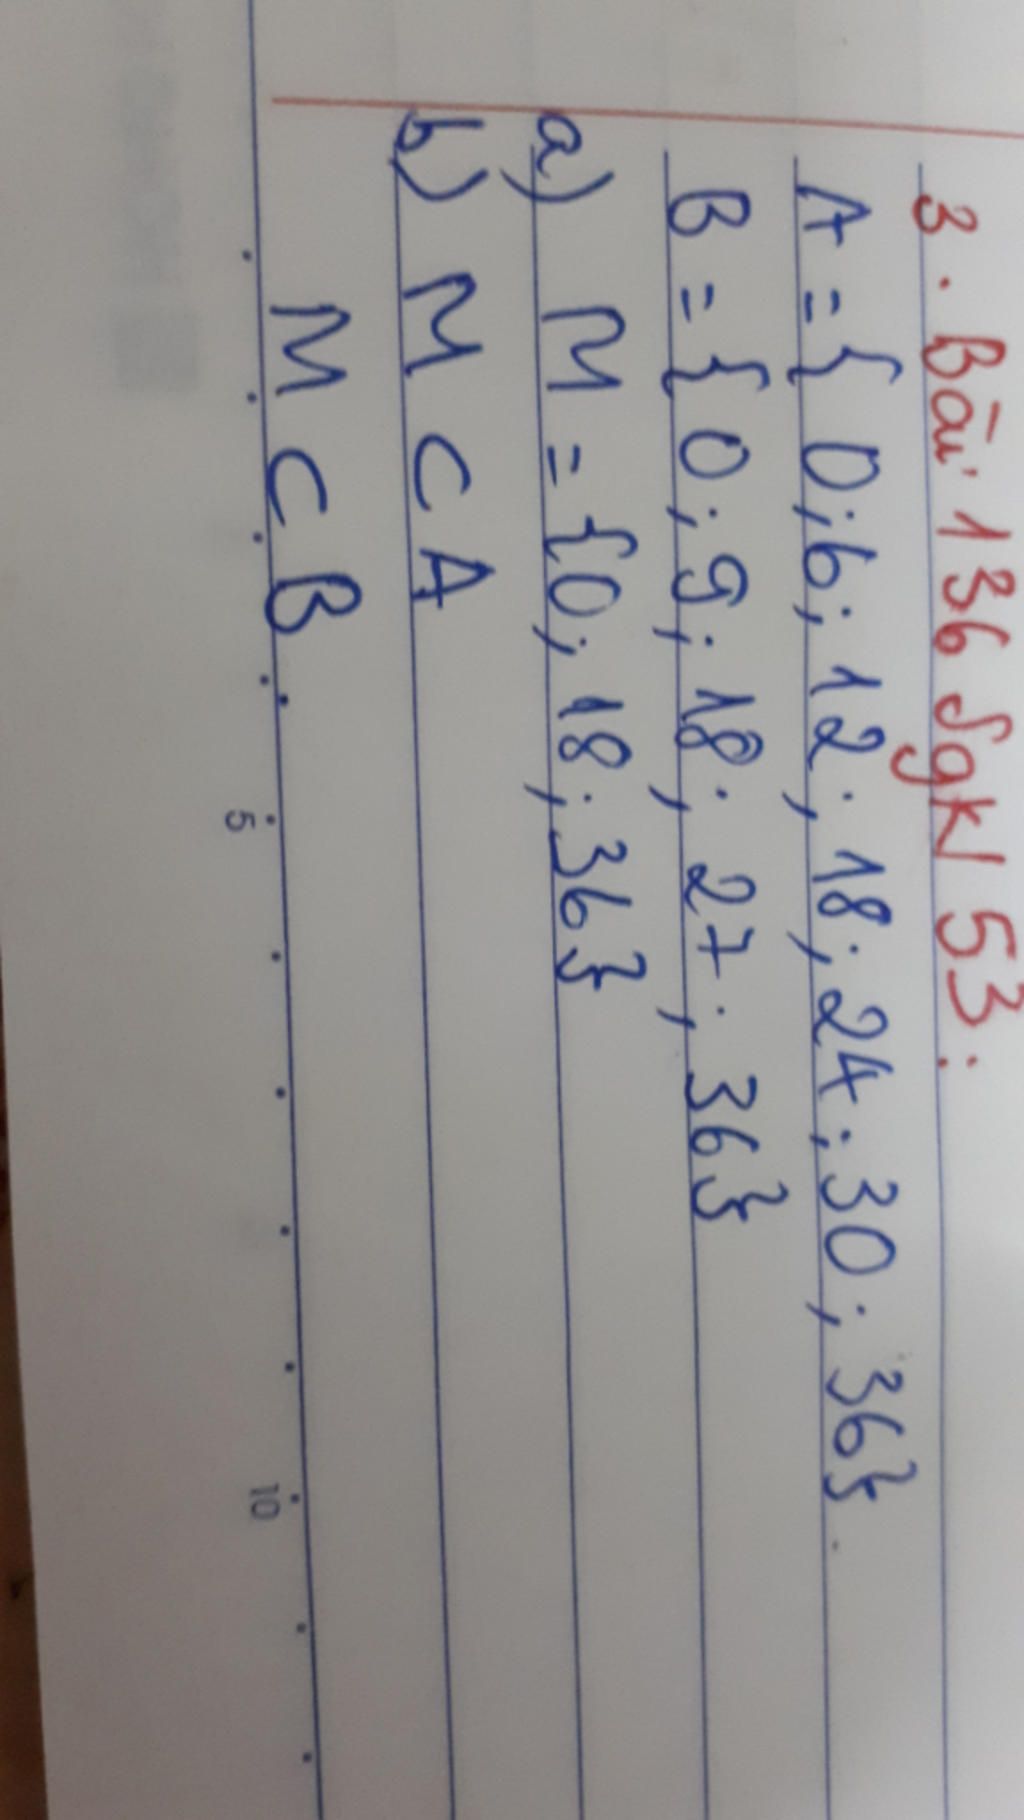 3. Bài 136 Sgk/53:
A = { 0; 6; 12; 18; 24; 30; 36}
B = { 0; 9; 18; 27; 36}
a) M = {0; 18; 36}
b) M ⊂ A
M ⊂ B
5 10